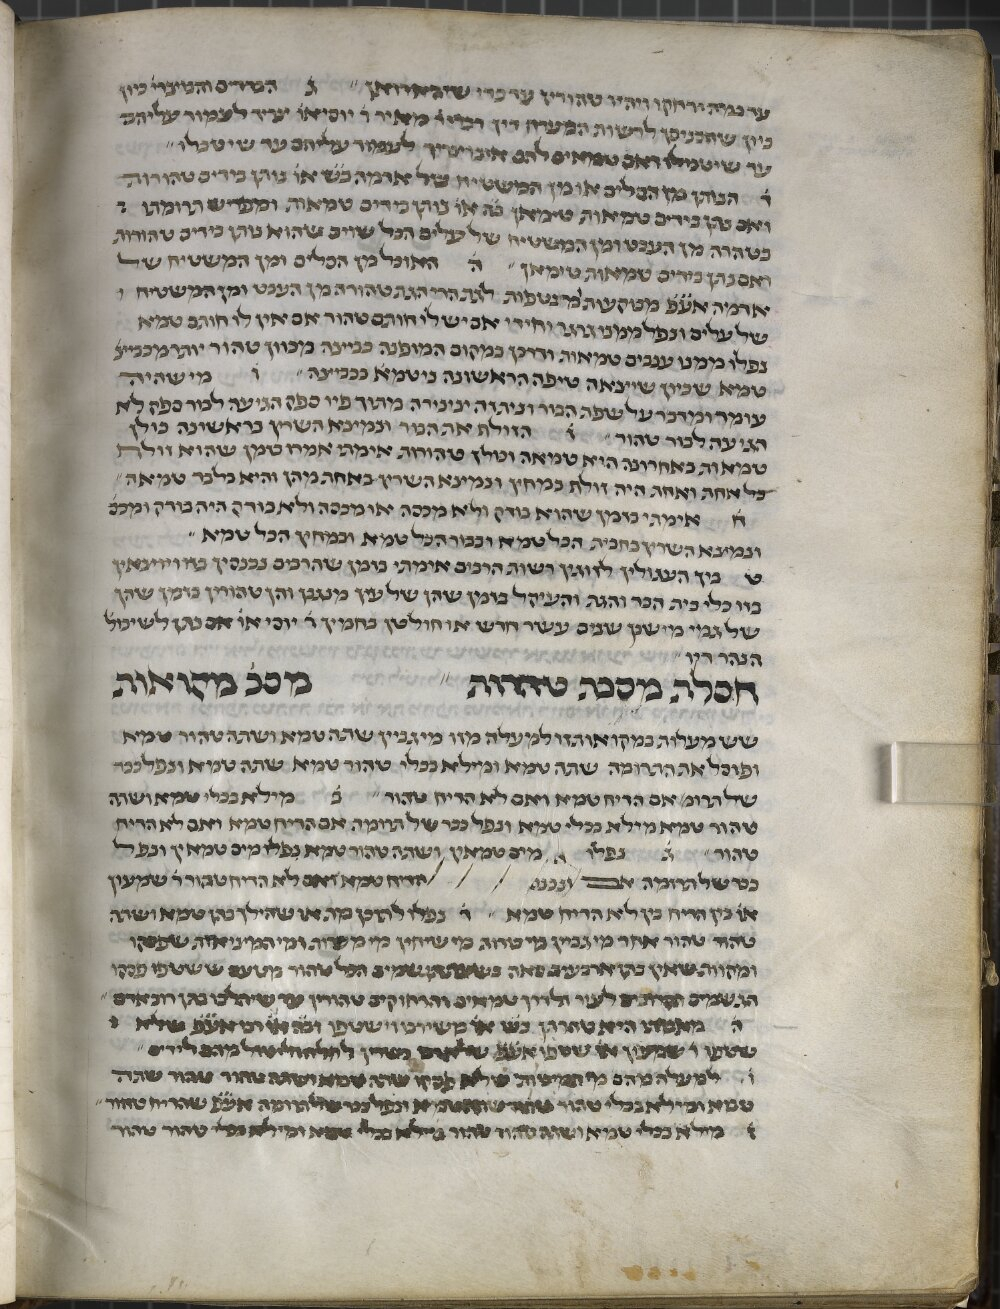 עד כמה ירחקו ויהיו טהורין עד כדי שיהא רואן ״ ג הבדדים והבוצרי׳ כיון
כיון שהכניסן לרשות המערה דיין דברי ר׳ מאיר ר׳ יוסי או׳ צריך לעמוד עליהם
עד שיטבילו ואם טמאים להם אינו צריך לעמוד עליהם עד שיטבלו ״
ד הנותן מן הסלים או מן המשטיח של אדמה בש׳ או׳ נותן בידים טהורות
ואם נתן בידים טמאות טימאן בה׳ או׳ נותן בידים טמאות ומפריש תרומתו
בטהרה מן העבט ומן המשטיח של עלים הכל שוים שהוא נותן בידים טהורות
ואם נתן בידים טמאות טימאן ״ ה האוכל מן הסלים ומן המשטיח של
אדמה אע״פ מבוקעות מנטפות לגת הרי הגת טהורה מן העבט ומן המשטיח
של עלים ונפל ממנו גרגר יחידי אם יש לו חותם טהור אם אין לו חותם טמא
נפלו ממנו ענבים טמאות ודרכן במקום המופנה כביצה מכוון טהור יותר מכביצ׳
טמא שכיון שיצאה טיפה הראשונה ניטמא בכביצה ״ ו מי שהיה
עומד ומדבר על שפת הבור וניתזה צינורה מתוך פיו ספק הגיעה לבור ספק לא
הגיעה לבור טהור ״ ז הזולף את הבור ונמצא השרץ בראשונה כולן
טמאות באחרונה היא טמאה וכולן טהורות אימתי אמרו בזמן שהוא זולף
כל אחת ואחת היה זולף במחץ ונמצא השרץ באחת מהן והיא בלבד טמאה ״
ח אימתי בזמן שהוא בודק ולא מכסה או מכסה ולא בודק היה בודק ומכס׳
ונמצא השרץ בחבית הכל טמא ובבור הכל טמא ובמחץ הכל טמא ״
ט בין העגולין לזוגין רשות הרבים אימתי בזמן שהרבים נכנסין בזו ויוצאין
בזו כלי בית הבד והגת והעיקל בזמן שהן של עץ מנגבן והן טהורין בזמן שהן
של גמי מיישנן שנים עשר חדש או חולטן בחמין ר׳ יוסי או׳ אם נתן לשיבול׳
הנהר דיו ״
חסלת מסכת טהרות ״ מסכ׳ מקואות
שש מעלות במקואות זו למעלה מזו מי גבין שתה טמא ושתה טהור טמא
ופוסל את התרומה שתה טמא ומילא בכלי טהור טמא שתה טמא ונפל ככר
של תרומ׳ אם הדיח טמא ואם לא הדיח טהור ״ ב מילא בכלי טמא ושתה
טהור טמא מילא בכלי טמא ונפל ככר של תרומה אם הדיח טמא ואם לא הדיח
טהור ״ ג נפלו מים טמאין ושתה טהור טמא נפלו מים טמאין ונפל
ככר של תרומה אם הדיח טמא ואם לא הדיח טהור ר׳ שמעון
או׳ בין הדיח בין לא הדיח טמא ״ ד נפלו לתוכן מת או שהילך בהן טמא ושתה
טהור טהור אחד מי גבין מי בורות מי שיחין מי מערות ומי תמציאות שפסקו
ומקוות שאין בהן ארבעים סאה בשעת הגשמים הכל טהור
הגשמים הקרובים לעיר ולדרך טמאים והרחוקים טהורין עד שיהלכו בהן רוב אדם ״
ה מאמתי היא טהרתן בש׳ או׳ משירבו וישטפו ובה׳ או׳ רבו אע״פ שלא
שטפו ר׳ שמעון או׳ שטפו אע״פ שלא רבו כשרין לחלה וליטול מהם לידים ״
ו למעלה מהם מי תמציות שלא פסקו שתה טמא ושתה טהור טהור שתה
טמא ומילא בכלי טהור טהור שתה טמא ונפל ככר של תרומה אע״פ שהדיח טהור ״
ז מילא בכלי טמא ושתה טהור טהור מילא בכלי טמא ומילא בכלי טהור טהור